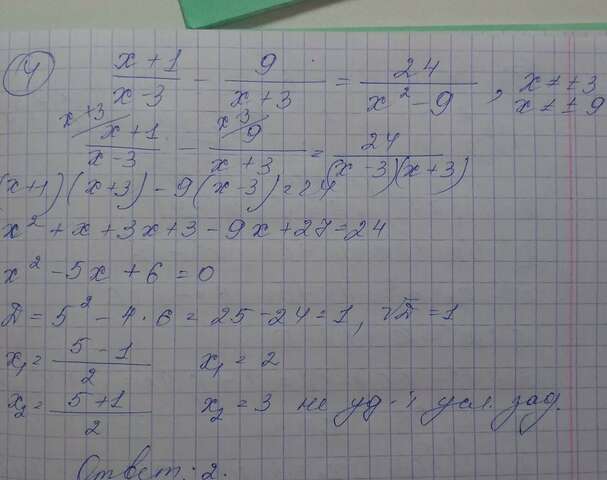 4
(x+1)/(x-3) - 9/(x+3) = 24/(x²-9), x ≠ ±3
x ≠ ± 9
x+3 x-3
(x+1)/(x-3) - 9/(x+3) = 24/((x-3)(x+3))
(x+1)(x+3) - 9(x-3) = 24
x² + x + 3x + 3 - 9x + 27 = 24
x² - 5x + 6 = 0
D = 5² - 4·6 = 25 - 24 = 1, √D = 1
x₁ = (5-1)/2 x₁ = 2
x₂ = (5+1)/2 x₂ = 3 не уд-т усл. зад.
Ответ: 2.